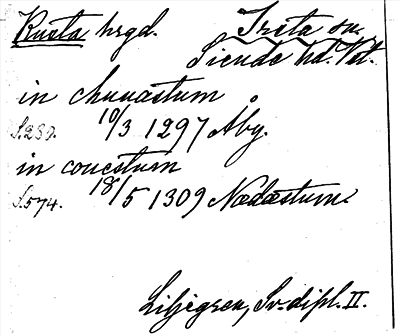 Knista hrgd. Irsta sn.
Siende hd. Vst.
in chnuastum
S.239. 10/3 1297 Åby.
in conestum
S.574. 18/5 1309 Nædæstum.
Liljegren, Sv. dipl. II.